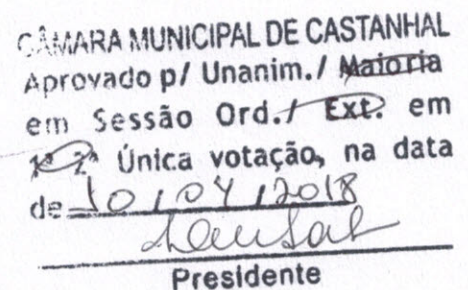 CÂMARA MUNICIPAL DE CASTANHAL
Aprovado p/ Unanim./ Maioria
em Sessão Ord./ Ext. em
1ª 2ª Única votação, na data
de 10/04/2018
Presidente